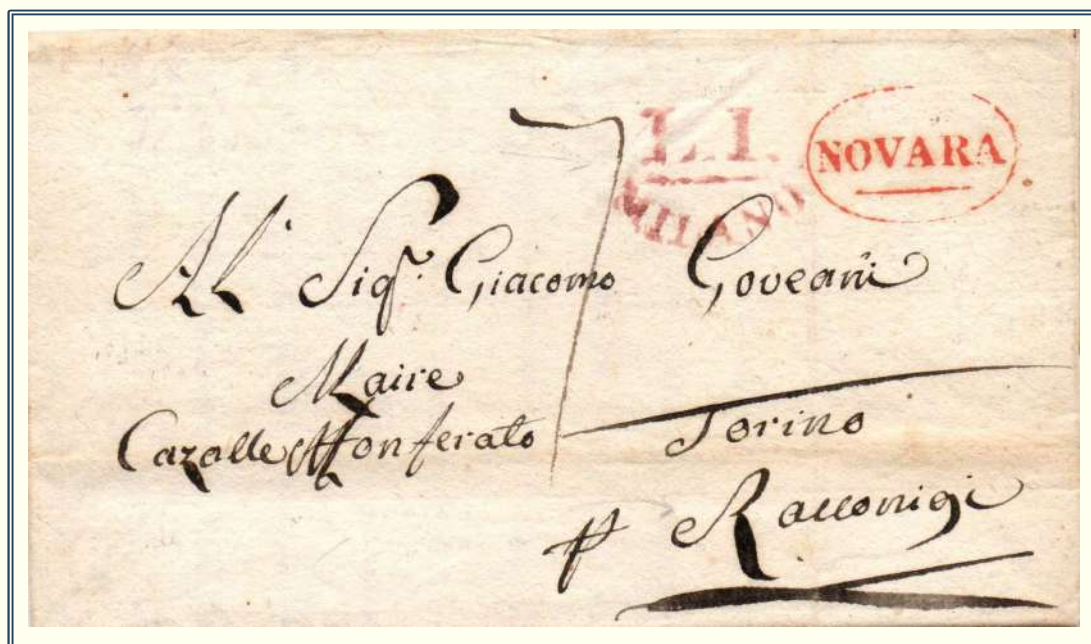 L.I.
MILANO
NOVARA
7
Al Sigr. Giacomo Goveani
Maire
Cazalle Monferato
Torino
p Racconigi